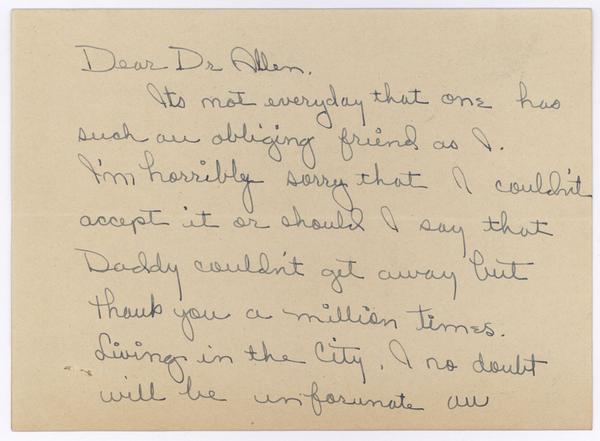 Dear Dr Allen.
Its not everyday that one has
such an obliging friend as I.
I'm horribly sorry that I couldn't
accept it or should I say that
Daddy couldn't get away but
thank you a million times.
Living in the City, I no doubt
will be unforunate au